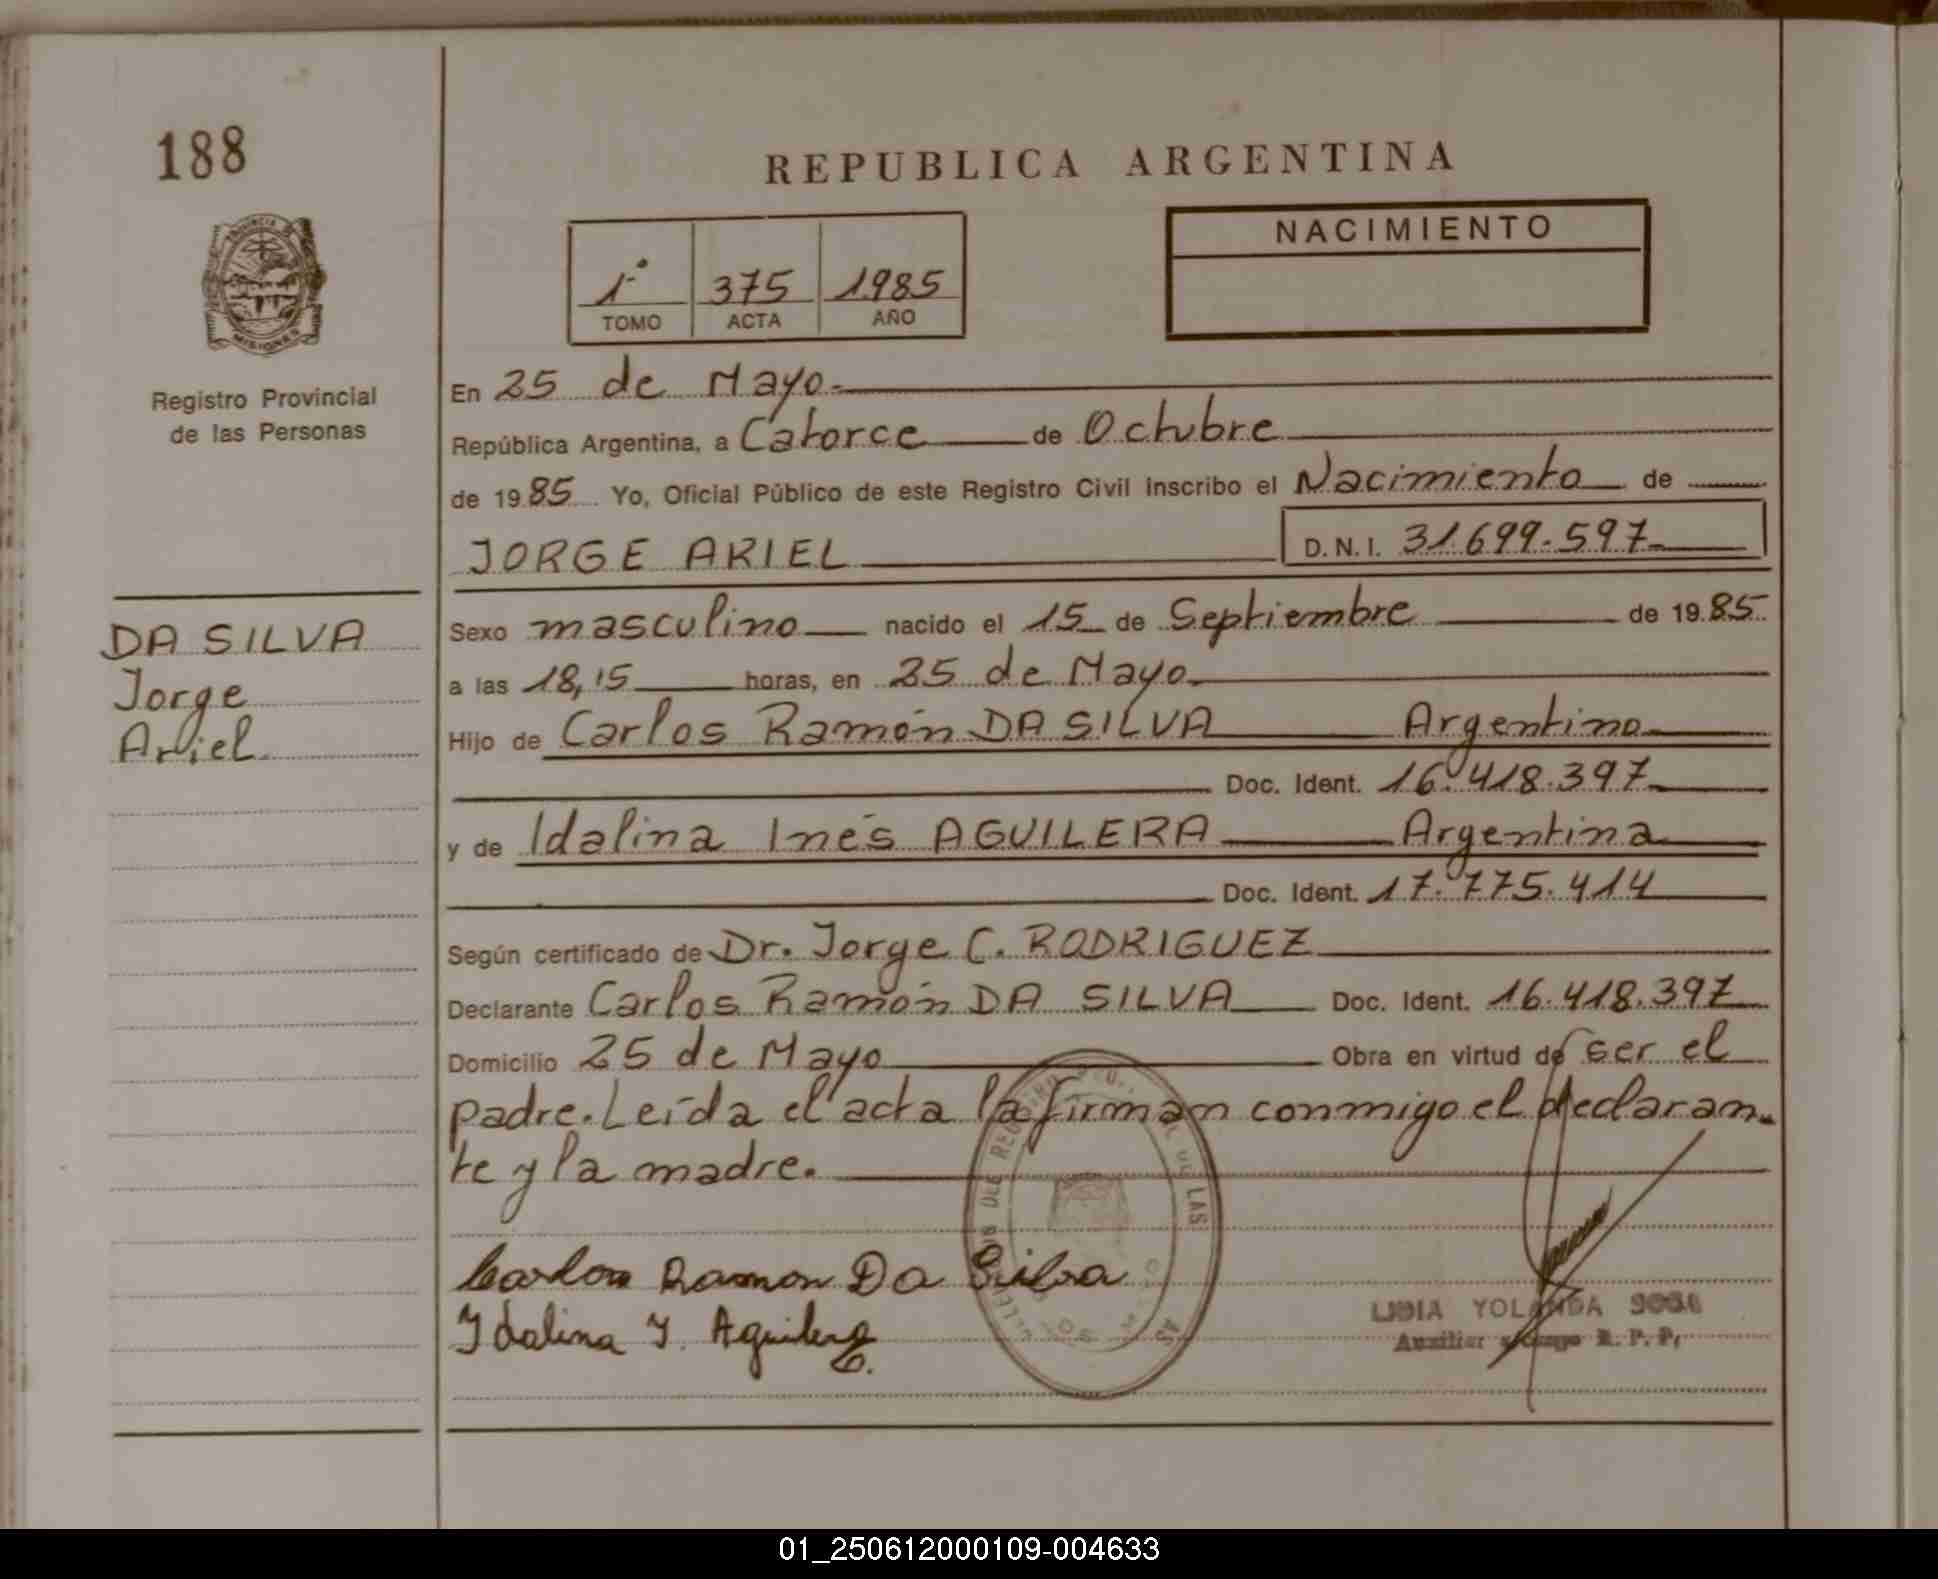 188
REPUBLICA ARGENTINA
NACIMIENTO
1º 375 1985
TOMO ACTA AÑO
PROVINCIA DE
MISIONES
Registro Provincial
de las Personas
En 25 de Mayo
República Argentina, a Catorce de Octubre
de 1985 Yo, Oficial Público de este Registro Civil inscribo el Nacimiento de
JORGE ARIEL D.N.I. 31.699.597
DA SILVA
Jorge
Ariel
Sexo masculino nacido el 15 de Septiembre de 1985
a las 18,15 horas, en 25 de Mayo
Hijo de Carlos Ramón DA SILVA Argentino
Doc. Ident. 16.418.397
y de Idalina Inés AGUILERA Argentina
Doc. Ident. 17.775.414
Según certificado de Dr. Jorge C. RODRIGUEZ
Declarante Carlos Ramón DA SILVA Doc. Ident. 16.418.397
Domicilio 25 de Mayo Obra en virtud de ser el
padre. Leída el acta la firman conmigo el declaran-
te y la madre.
Carlos Ramon Da Silva
Idalina I. Aguilera
LIDIA YOLANDA
Auxiliar a Cargo R. P. P.
01_250612000109-004633